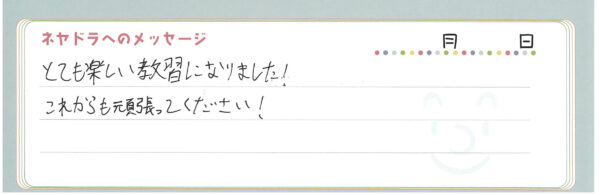 ネヤドラへのメッセージ
月 日
とても楽しい教習になりました!
これからも頑張ってください!